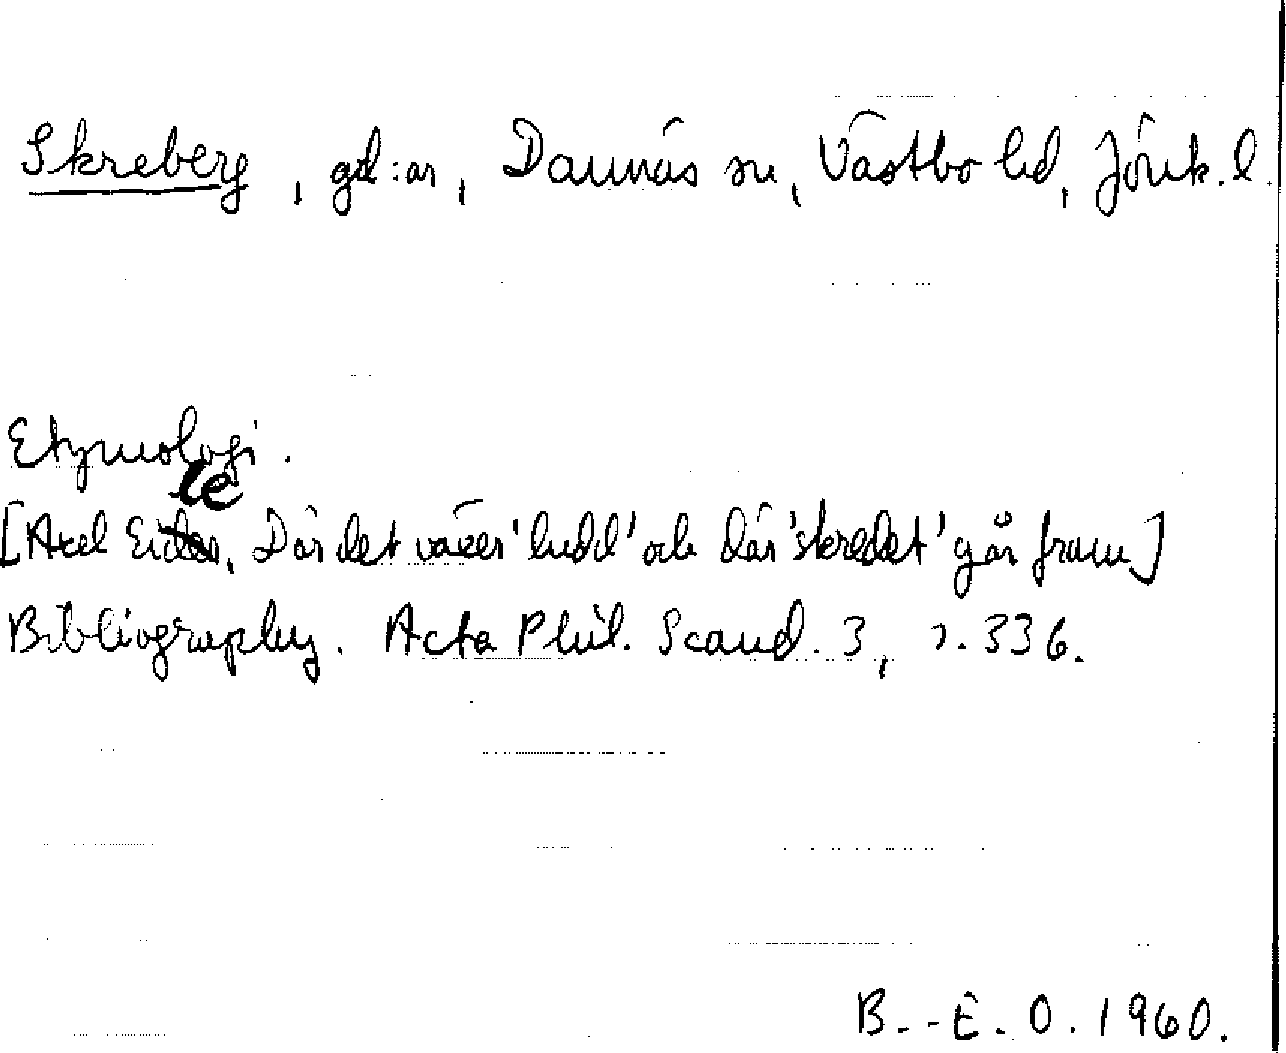 Skreberg, gd:ar, Dannäs sn, Västbo hd, Jönk. l.
Etymologi.
[Axel Eide, Där det växer 'ludd' och där 'skredet' går fram]
Bibliography. Acta Phil. Scand. 3, s. 336.
B.-E. O. 1960.